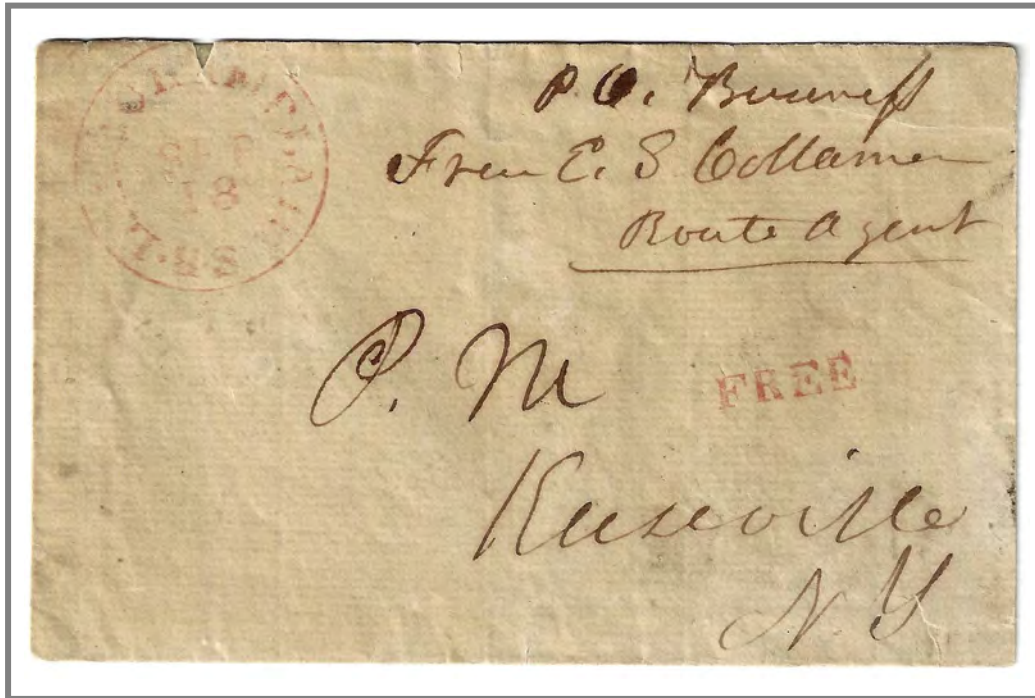 SEP
18
P. O. Business
Free E. S Collamer
Route Agent
P. M
FREE
Keeseville
N. Y